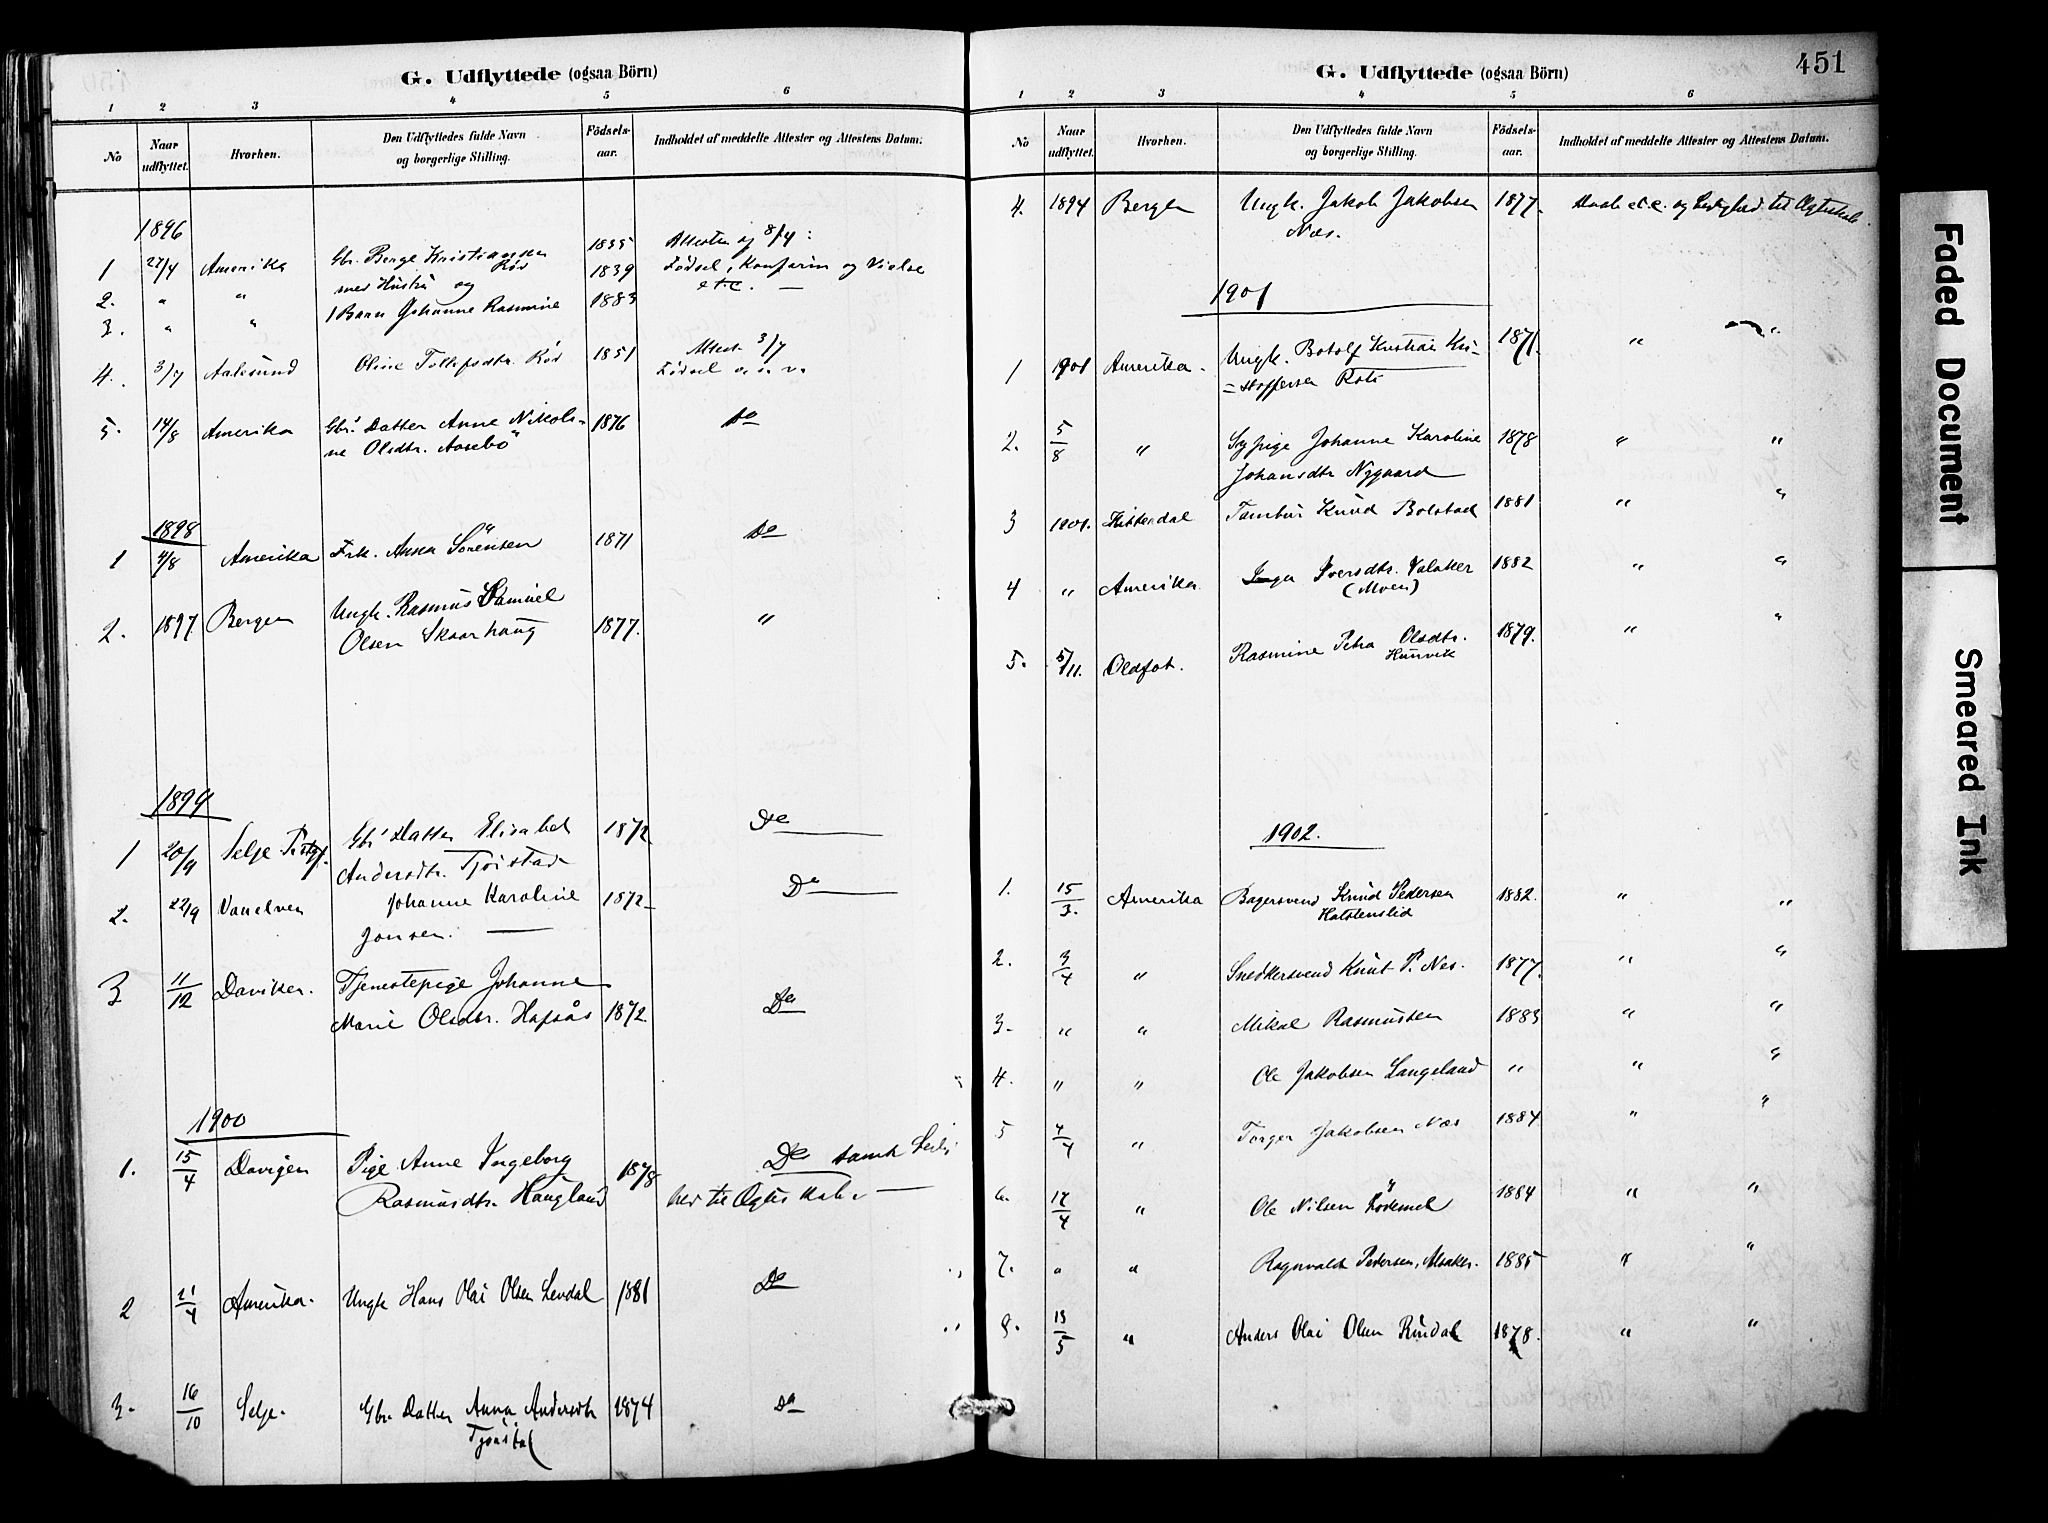 G. Udflyttede (ogsaa Börn)
1 2 3 4 5 6
No Naar udflyttet. Hvorhen. Den Udflyttedes fulde Navn og borgerlige Stilling. Födsels-aar. Indholdet af meddelte Attester og Attestens Datum.
1896
1 27/4 Amerika Gbr. Berge Kristiansen Röd 1835 Attester af 8/4:
2. " " med Hustru og 1839 Födsel, Konfirm og Vielse
3. " " 1 Barn Johanne Rasmine 1883 etc. —
4. 3/7 Aalesund Oline Tollefsdtr. Röd 1851 Attest 3/7
Födsel o. s. v.
5. 14/8 Amerika Gbr. Datter Anne Nikoli-
ne Olsdtr. Aasebö 1876 Do
1898
1 4/8 Amerika Frk. Anna Sörensen 1871 Do
2. 1897 Bergen Ungk. Rasmus Samuel
Olsen Skaarhaug 1877. "
1899
1 20/9 Selje Gbr. Datter Elisabet 1872 Do
Andersdtr. Tjöistad
2. 22/9 Vanelven Johanne Karoline 1872 Do
Jonsen. —
3 11/12 Daviken. Tjenestepige Johanne
Marie Olsdtr. Hafsås 1872 Do
1900
1. 15/4 Davigen Pige Anne Ingeborg 1878 Do samt Ledig
Rasmusdtr. Haugland hed til Ægteskab. —
2 21/4 Amerika. Ungk Hans Olai Olsen Levdal 1881 Do
3. 16/10 Selje. Gbr. Datter Anna Andersdtr 1874 Do
G. Udflyttede (ogsaa Börn)
451
1 2 3 4 5 6
No Naar udflyttet. Hvorhen. Den Udflyttedes fulde Navn og borgerlige Stilling. Födsels-aar. Indholdet af meddelte Attester og Attestens Datum.
4. 1894 Bergen Ungk. Jakob Jakobsen 1877. Daab etc. og Ledighed til Ægteskab.
Næs.
1901
1 1901 Amerika. Ungk. Botolf Kristian Kri- 1871. " "
=stoffersen
2. 5/8 " Sypige Johanne Karoline 1878 " "
Johansdtr Nygaard
3 1901. Hitterdal Tambur Knud Bolstad 1881 " "
4 " Amerika Iversdtr. Valaker 1882 " "
(Moen)
5. 5/11. Oldfot. Rasmine Petra Olsdtr. 1879. " "
1902.
1. 15/3. Amerika Bagersvend Knud Pedersen 1882. " "
Hatlenslid
2. 3/4 " Snedkersvend Knut P. Nes. 1877. " "
3. " " Mikal Rasmussen 1883 " "
4. " " Ole Jakobsen Langeland " " "
5 4/4 " Torger Jakobsen Næs 1884 " "
6. 17/4 " Ole Nilsen Lödemel 1884 " "
7. " " Ragnvald Pedersen, Alsaker. 1885 " "
8. 13/5 " Anders Olai Olsen Rindal 1878. " "
Faded Document
Smeared Ink